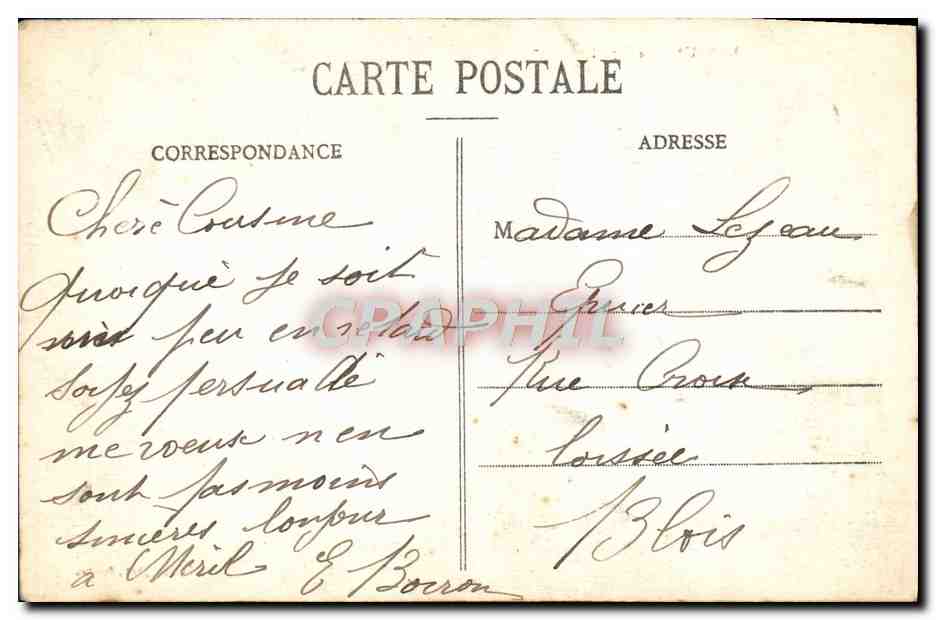 CARTE POSTALE
CORRESPONDANCE
Cheré Cousine
Quoique je soit
un peu en retard
Soyez persuadé
me voeux n en
sont pas moins
sincères bonjour
a Meril E Boiron
ADRESSE
Madame Lezeau
Epicier
Rue Croix
boissée
Blois
CPAPHIL